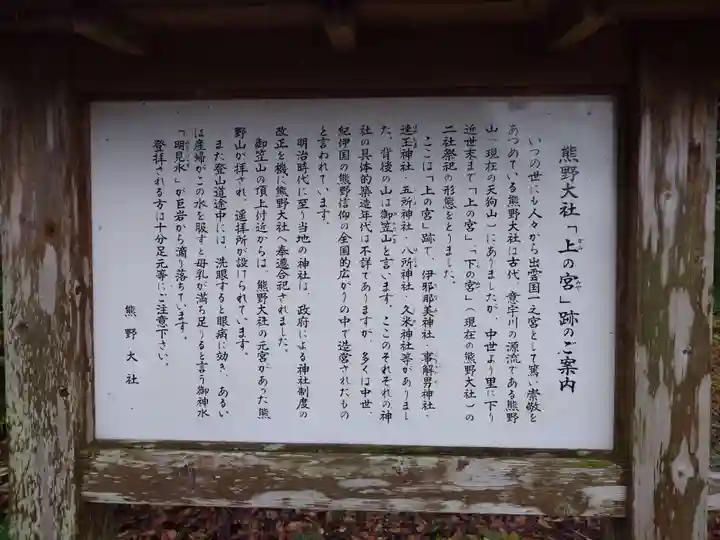 熊野大社「上の宮」跡のご案内
いつの世にも人々から出雲国一之宮として篤い崇敬を
あつめている熊野大社は古代、意宇川の源流である熊野
山(現在の天狗山)にありましたが、中世より里に下り
近世末まで「上の宮」「下の宮」(現在の熊野大社)の
二社祭祀の形態をとりました。
ここは「上の宮」跡で、伊邪那美神社・事解男神社・
速玉神社・五所神社・八所神社・久米神社等がありまし
た。背後の山は御笠山と言います。ここのそれぞれの神
社の具体的築造年代は不詳でありますが、多くは中世、
紀伊国の熊野信仰の全国的広がりの中で造営されたもの
と言われています。
明治時代に至り当地の神社は、政府による神社制度の
改正を機に熊野大社へ奉遷合祀されました。
御笠山の頂上付近からは、熊野大社の元宮があった熊
野山が拝され、遥拝所が設けられています。
また登山道途中には、洗眼すると眼病に効き、あるい
は産婦がこの水を服すと母乳が満ち足りると言う御神水
「明見水」が巨岩から滴り落ちています。
登拝される方は十分足元等にご注意下さい。
熊野大社